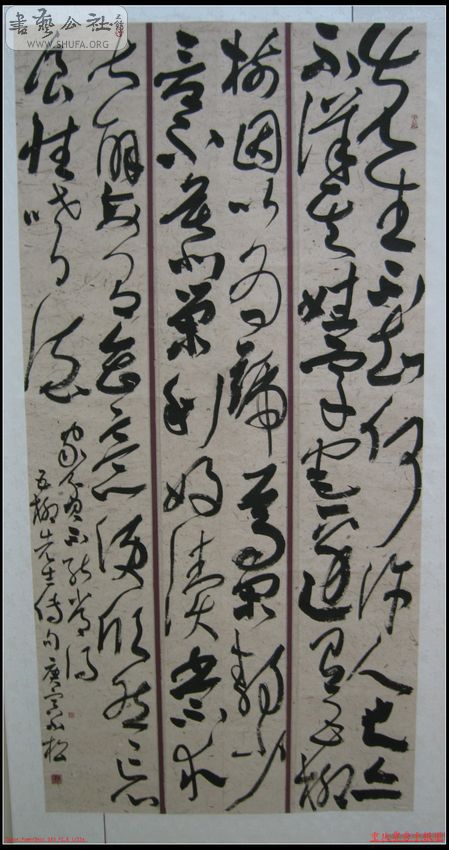 書藝公社
WWW.SHUFA.ORG
先生不知何許人也亦
不詳其姓字宅邊有五柳
樹因以為號焉閑靜少
言不慕榮利好讀書不求
甚解每有會意便欣然忘
食性嗜酒
家貧不能常得
五柳先生傳句庚寅